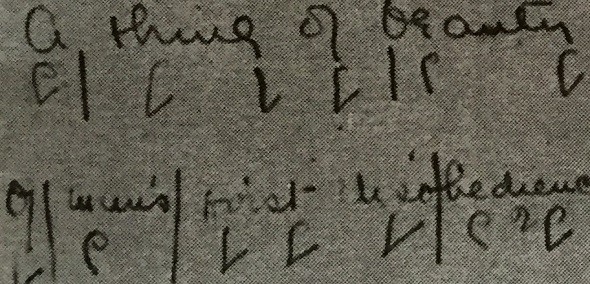 A thing of beauty
Of man's first disobedienc